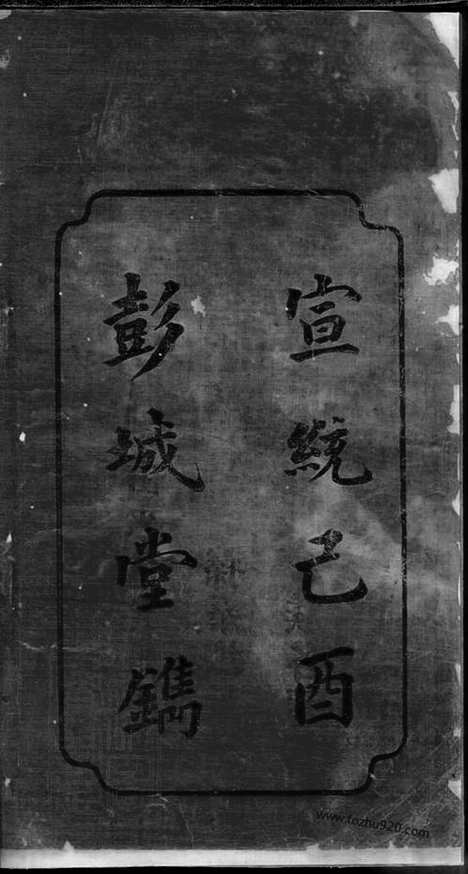 宣統己酉
彭城堂鐫
www.fozhu920.com